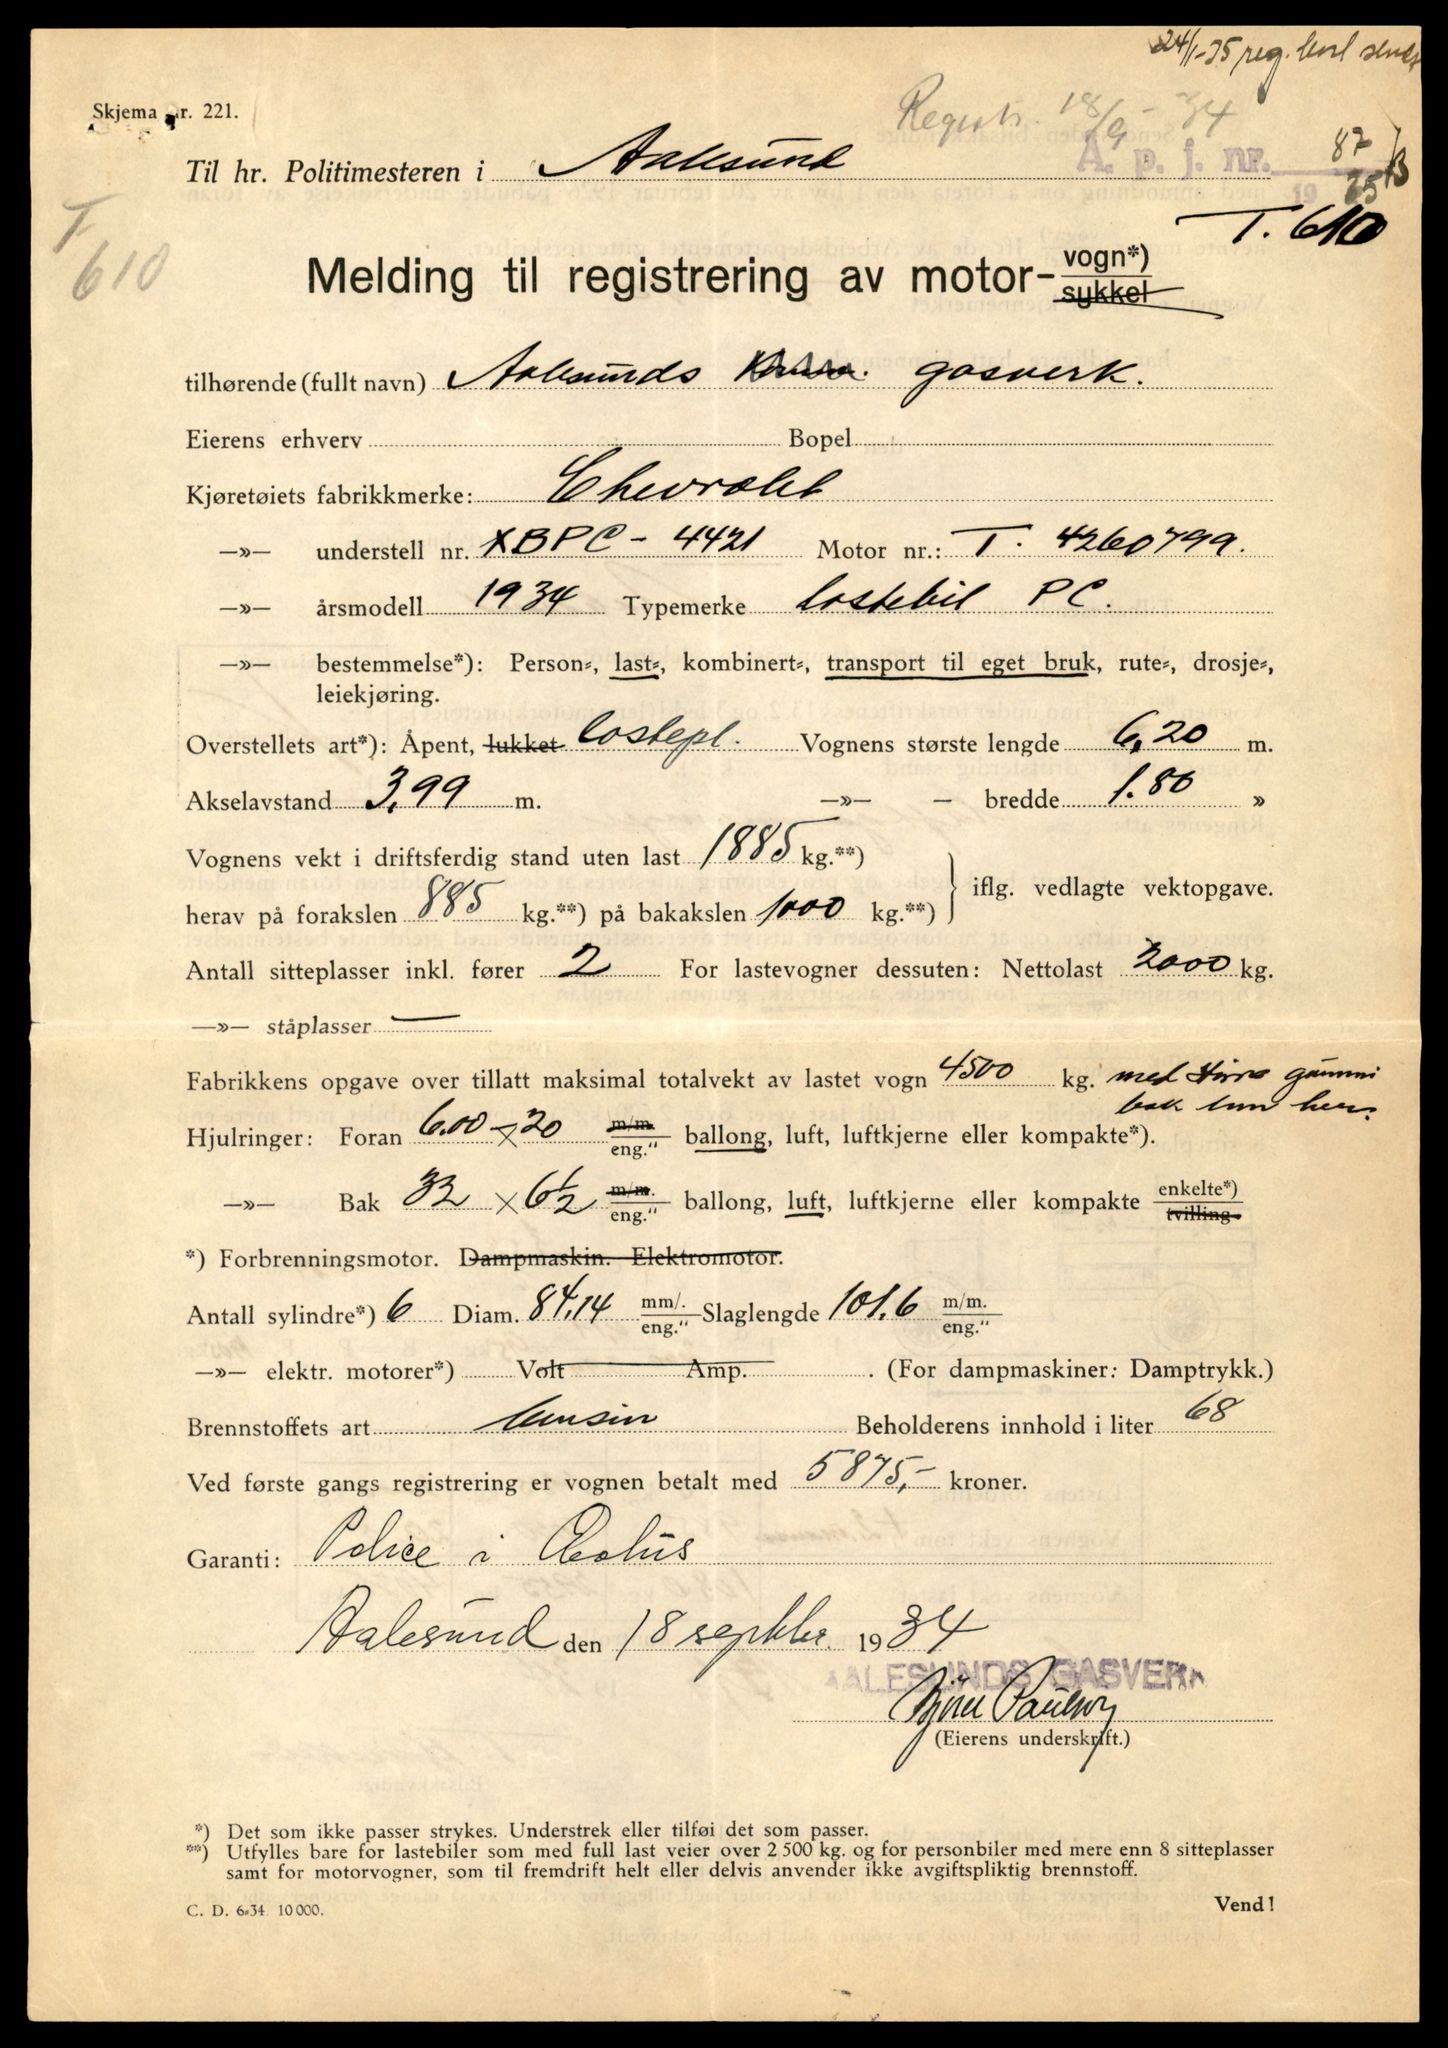 24/1-35 reg.
Skjema nr. 221.
Registr. 18/9-34
Til hr. Politimesteren i Aalesund
A. p. j. nr. 87
19 35
T. 610
T
610
Melding til registrering av motor- vogn*)
sykkel
tilhørende (fullt navn) Aalesunds gasverk.
Eierens erhverv Bopel
Kjøretøiets fabrikkmerke: Chevrolet
—»— understell nr. XBPC - 4421 Motor nr.: T. 4260799.
—»— årsmodell 1934 Typemerke lastebil PC.
—»— bestemmelse*): Person-, last-, kombinert-, transport til eget bruk, rute-, drosje-,
leiekjøring.
Overstellets art*): Åpent, lukket lastepl. Vognens største lengde 6,20 m.
Akselavstand 3,99 m. —»— — bredde 1.80 »
Vognens vekt i driftsferdig stand uten last 1885 kg.**)
herav på forakslen 885 kg.**) på bakakslen 1000 kg.**) } iflg. vedlagte vektopgave.
Antall sitteplasser inkl. fører 2 For lastevogner dessuten: Nettolast 2000 kg.
—»— ståplasser —
Fabrikkens opgave over tillatt maksimal totalvekt av lastet vogn 4500 kg. med større gummi
bak enn her.
Hjulringer: Foran 6.00 × 20 m/m. eng." ballong, luft, luftkjerne eller kompakte*).
—»— Bak 32 × 6 1/2 m/m. eng." ballong, luft, luftkjerne eller kompakte enkelte*) tvilling.
*) Forbrenningsmotor. Dampmaskin. Elektromotor.
Antall sylindre*) 6 Diam. 84,14 mm/. eng." Slaglengde 101.6 m/m. eng."
—»— elektr. motorer*) Volt Amp. . (For dampmaskiner: Damptrykk.)
Brennstoffets art bensin Beholderens innhold i liter 68
Ved første gangs registrering er vognen betalt med 5875,- kroner.
Garanti: Police i Æolus
Aalesund den 18 septbr. 1934
AALESUNDS GASVERK
Paulsen
(Eierens underskrift.)
*) Det som ikke passer strykes. Understrek eller tilføi det som passer.
**) Utfylles bare for lastebiler som med full last veier over 2 500 kg. og for personbiler med mere enn 8 sitteplasser
samt for motorvogner, som til fremdrift helt eller delvis anvender ikke avgiftspliktig brennstoff.
Vend!
C. D. 6-34 10 000.